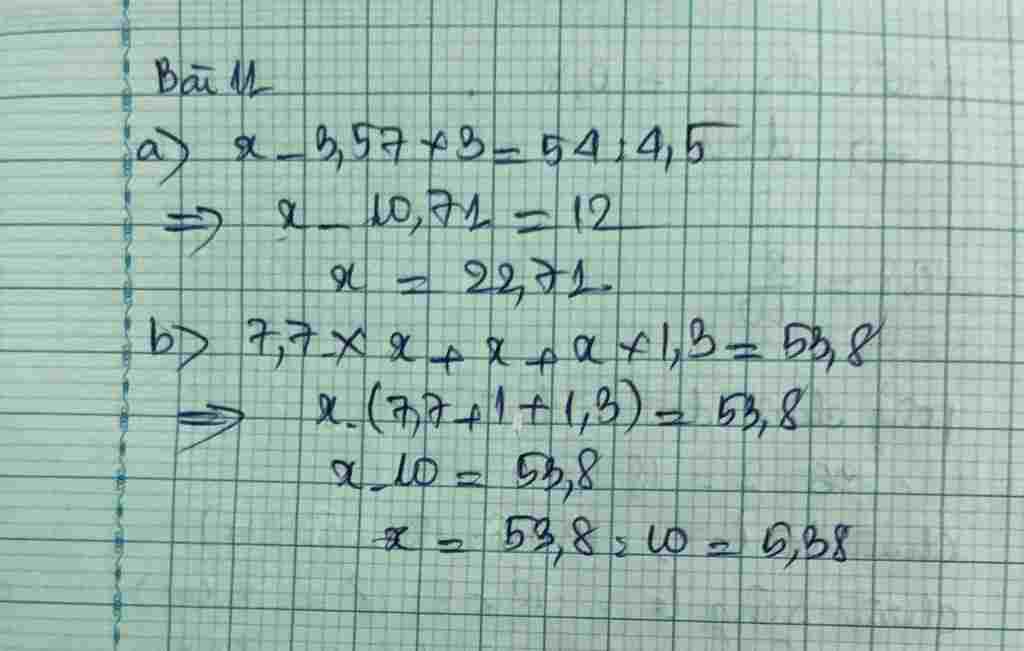 Bài 11
a) x - 3,57 × 3 = 54 : 4,5
=> x - 10,71 = 12
x = 22,71
b) 7,7 × x + x + x × 1,3 = 53,8
=> x . (7,7 + 1 + 1,3) = 53,8
x . 10 = 53,8
x = 53,8 : 10 = 5,38